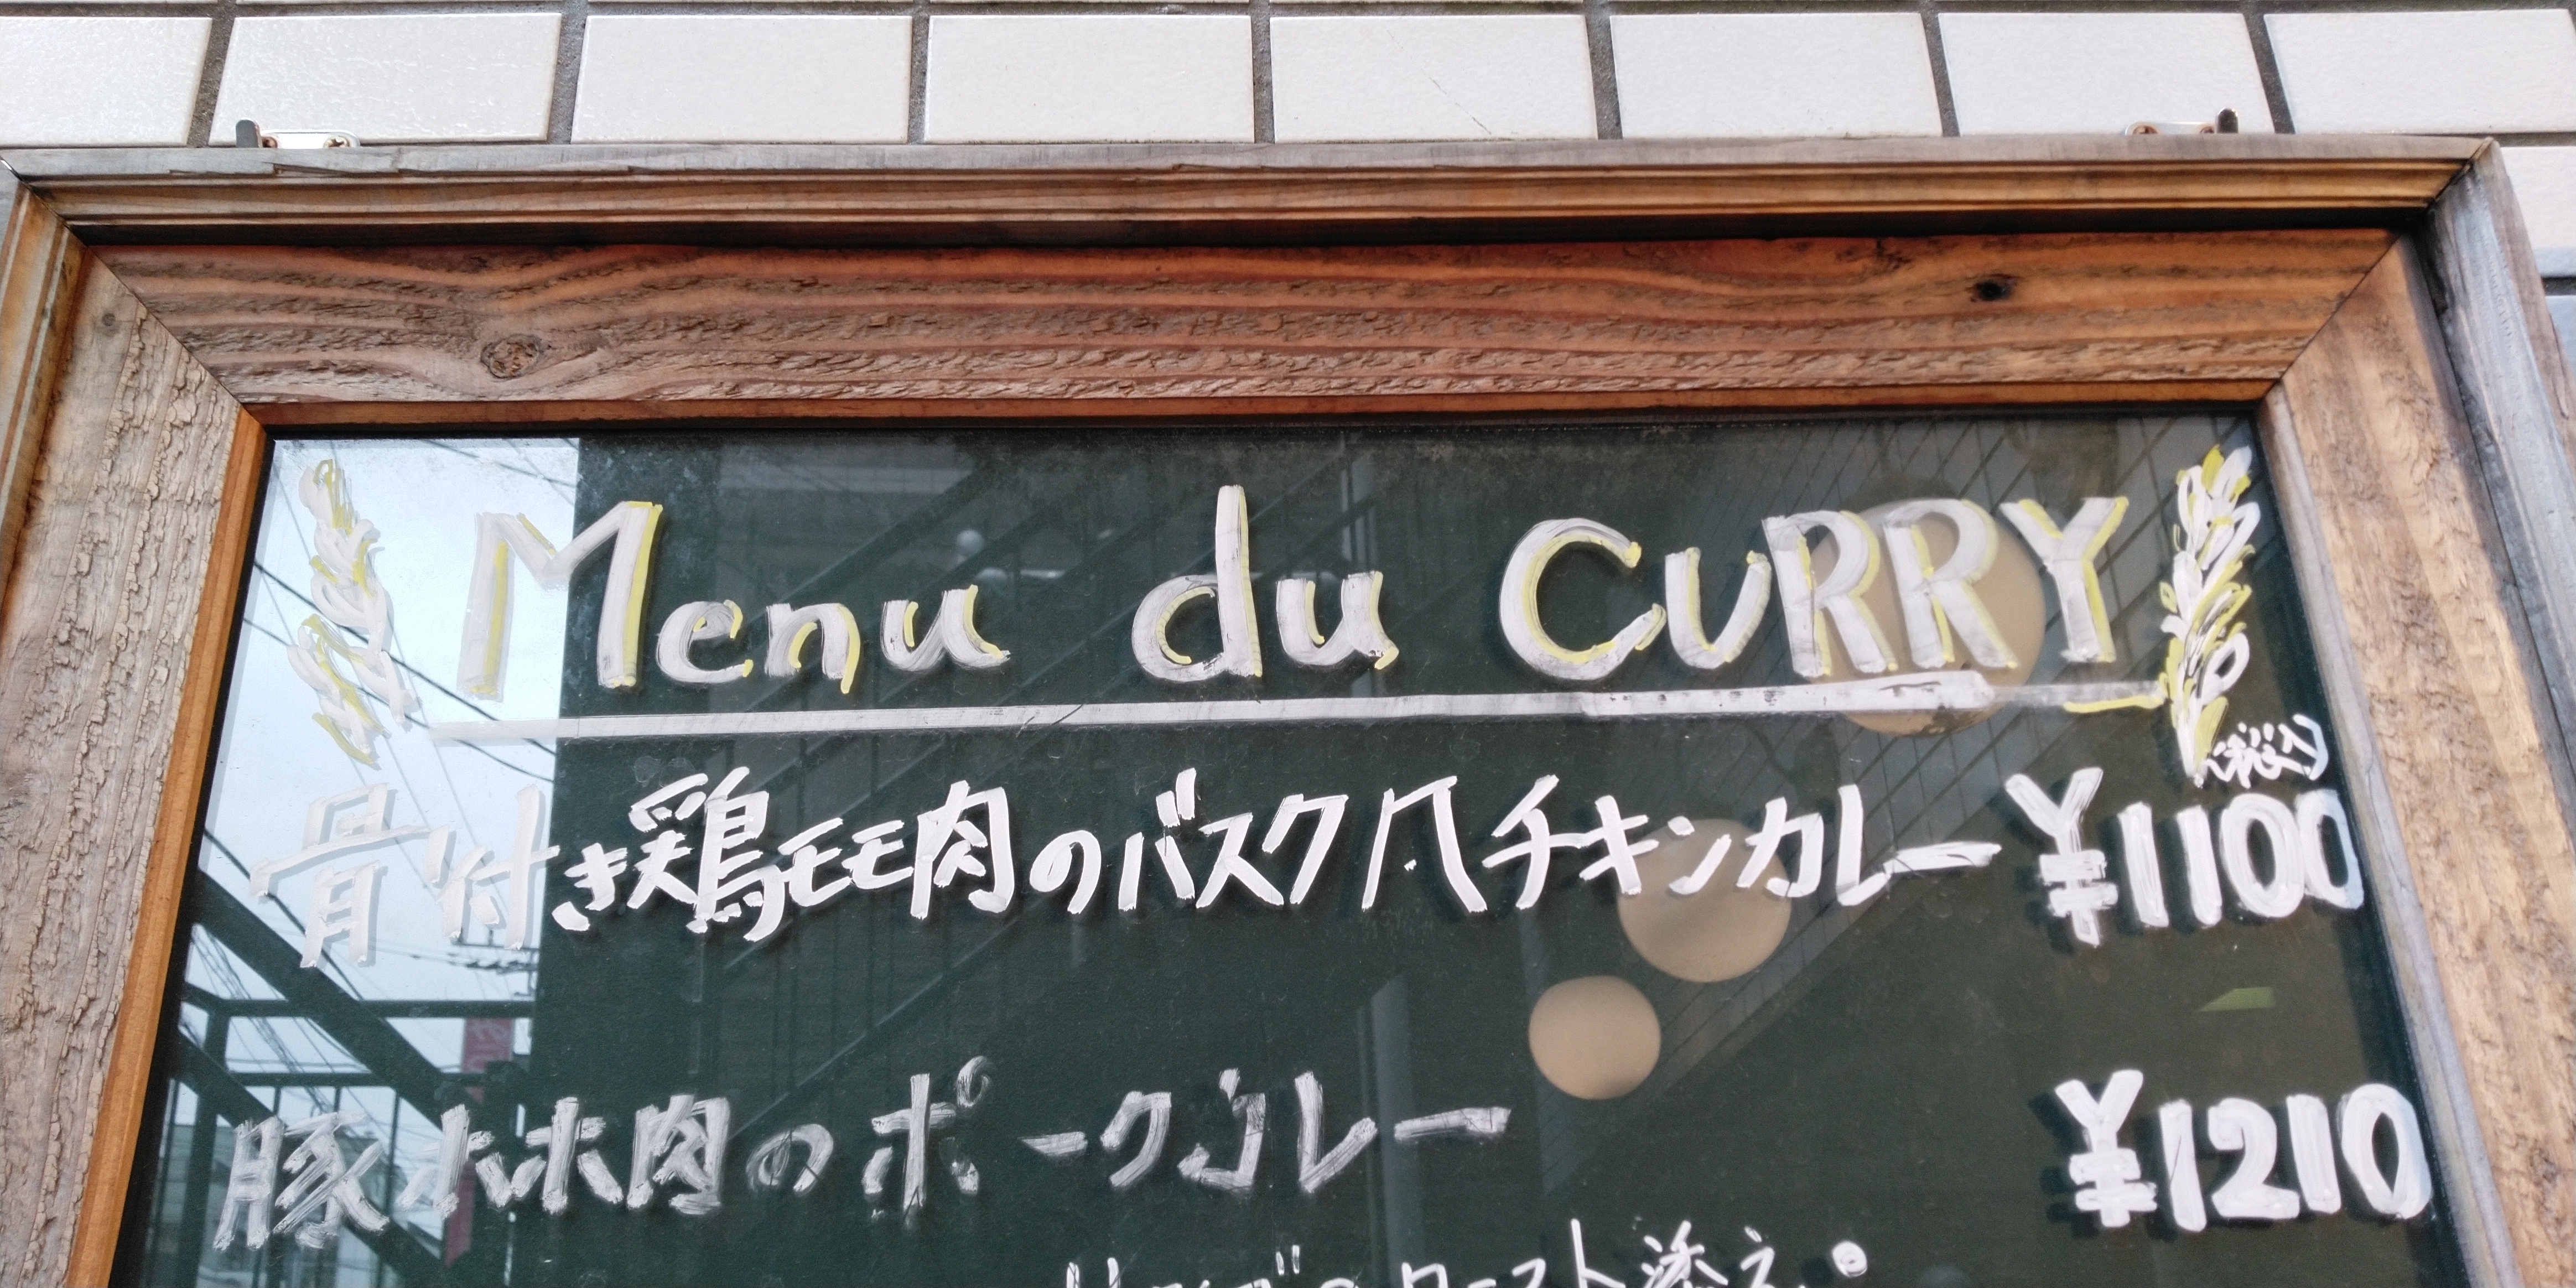 Menu du CURRY
(税込)
骨付き鶏モモ肉のバスク風チキンカレー ¥1100
豚ホホ肉のポークカレー ¥1210
のロースト添え。